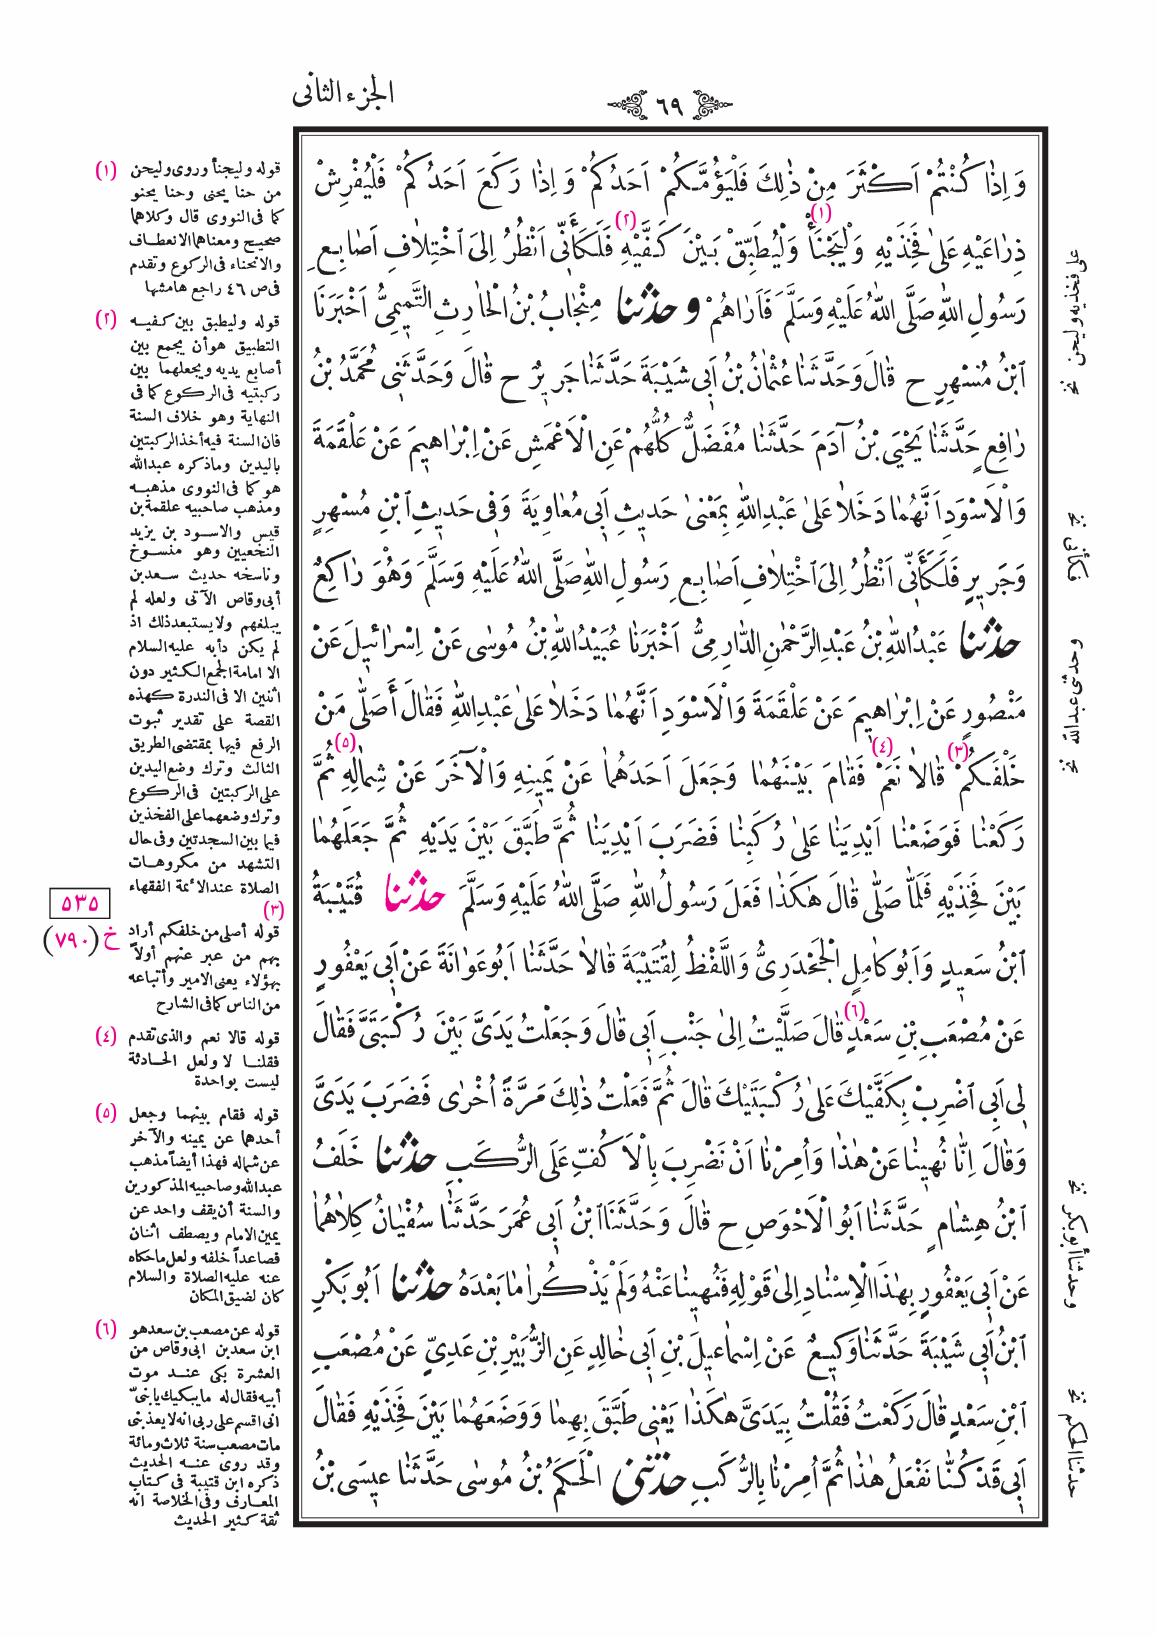 الجزء الثانى
٦٩
وَاِذَا كُنْتُمْ اَكْثَرَ مِنْ ذٰلِكَ فَلْيَؤُمَّكُمْ اَحَدُكُمْ وَاِذَا رَكَعَ اَحَدُكُمْ فَلْيُفْرِشْ
ذِرَاعَيْهِ عَلَى فَخِذَيْهِ وَلْيَجْنَأْ (١) وَلْيُطَبِّقْ بَيْنَ كَفَّيْهِ (٢) فَلَكَأَنِّى اَنْظُرُ اِلَى اخْتِلَافِ اَصَابِعِ
رَسُولِ اللّٰهِ صَلَّى اللّٰهُ عَلَيْهِ وَسَلَّمَ فَاَرَاهُمْ و حَدَّثَنَا مِنْجَابُ بْنُ الْحَارِثِ التَّمِيمِىُّ اَخْبَرَنَا
ابْنُ مُسْهِرٍ ح قَالَ وَحَدَّثَنَا عُثْمَانُ بْنُ اَبِى شَيْبَةَ حَدَّثَنَا جَرِيرٌ ح قَالَ وَحَدَّثَنِى مُحَمَّدُ بْنُ
رَافِعٍ حَدَّثَنَا يَحْيَى بْنُ آدَمَ حَدَّثَنَا مُفَضَّلٌ كُلُّهُمْ عَنِ الْاَعْمَشِ عَنْ اِبْرَاهِيمَ عَنْ عَلْقَمَةَ
وَالْاَسْوَدِ اَنَّهُمَا دَخَلَا عَلَى عَبْدِ اللّٰهِ بِمَعْنَى حَدِيثِ اَبِى مُعَاوِيَةَ وَفِى حَدِيثِ ابْنِ مُسْهِرٍ
وَجَرِيرٍ فَلَكَأَنِّى اَنْظُرُ اِلَى اخْتِلَافِ اَصَابِعِ رَسُولِ اللّٰهِ صَلَّى اللّٰهُ عَلَيْهِ وَسَلَّمَ وَهُوَ رَاكِعٌ
حَدَّثَنَا عَبْدُ اللّٰهِ بْنُ عَبْدِ الرَّحْمٰنِ الدَّارِمِىُّ اَخْبَرَنَا عُبَيْدُ اللّٰهِ بْنُ مُوسَى عَنْ اِسْرَائِيلَ عَنْ
مَنْصُورٍ عَنْ اِبْرَاهِيمَ عَنْ عَلْقَمَةَ وَالْاَسْوَدِ اَنَّهُمَا دَخَلَا عَلَى عَبْدِ اللّٰهِ فَقَالَ أَصَلَّى مَنْ
خَلْفَكُمْ (٣) قَالَا نَعَمْ (٤) فَقَامَ بَيْنَهُمَا وَجَعَلَ اَحَدَهُمَا عَنْ يَمِينِهِ وَالْآخَرَ عَنْ شِمَالِهِ (٥) ثُمَّ
رَكَعْنَا فَوَضَعْنَا اَيْدِيَنَا عَلَى رُكَبِنَا فَضَرَبَ اَيْدِيَنَا ثُمَّ طَبَّقَ بَيْنَ يَدَيْهِ ثُمَّ جَعَلَهُمَا
بَيْنَ فَخِذَيْهِ فَلَمَّا صَلَّى قَالَ هٰكَذَا فَعَلَ رَسُولُ اللّٰهِ صَلَّى اللّٰهُ عَلَيْهِ وَسَلَّمَ حَدَّثَنَا قُتَيْبَةُ
ابْنُ سَعِيدٍ وَاَبُو كَامِلٍ الْجَحْدَرِىُّ وَاللَّفْظُ لِقُتَيْبَةَ قَالَا حَدَّثَنَا اَبُو عَوَانَةَ عَنْ اَبِى يَعْفُورٍ
عَنْ مُصْعَبِ بْنِ سَعْدٍ (٦) قَالَ صَلَّيْتُ اِلَى جَنْبِ اَبِى قَالَ وَجَعَلْتُ يَدَىَّ بَيْنَ رُكْبَتَىَّ فَقَالَ
لِى اَبِى اضْرِبْ بِكَفَّيْكَ عَلَى رُكْبَتَيْكَ قَالَ ثُمَّ فَعَلْتُ ذٰلِكَ مَرَّةً اُخْرَى فَضَرَبَ يَدَىَّ
وَقَالَ اِنَّا نُهِينَا عَنْ هٰذَا وَاُمِرْنَا اَنْ نَضْرِبَ بِالْاَكُفِّ عَلَى الرُّكَبِ حَدَّثَنَا خَلَفُ
ابْنُ هِشَامٍ حَدَّثَنَا اَبُو الْاَحْوَصِ ح قَالَ وَحَدَّثَنَا ابْنُ اَبِى عُمَرَ حَدَّثَنَا سُفْيَانُ كِلَاهُمَا
عَنْ اَبِى يَعْفُورٍ بِهٰذَا الْاِسْنَادِ اِلَى قَوْلِهِ فَنُهِينَا عَنْهُ وَلَمْ يَذْكُرَا مَا بَعْدَهُ حَدَّثَنَا اَبُو بَكْرِ
ابْنُ اَبِى شَيْبَةَ حَدَّثَنَا وَكِيعٌ عَنْ اِسْمَاعِيلَ بْنِ اَبِى خَالِدٍ عَنِ الزُّبَيْرِ بْنِ عَدِىٍّ عَنْ مُصْعَبِ
ابْنِ سَعْدٍ قَالَ رَكَعْتُ فَقُلْتُ بِيَدَىَّ هٰكَذَا يَعْنِى طَبَّقَ بِهِمَا وَوَضَعَهُمَا بَيْنَ فَخِذَيْهِ فَقَالَ
اَبِى قَدْ كُنَّا نَفْعَلُ هٰذَا ثُمَّ اُمِرْنَا بِالرُّكَبِ حَدَّثَنِى الْحَكَمُ بْنُ مُوسَى حَدَّثَنَا عِيسَى بْنُ
على فخذيه وليحن نخ
فكأنى نخ
وحدثنى عبدالله نخ
وحدثنا أبوبكر نخ
حدثنا الحكم نخ
(١) قوله وليجنأ وروى وليحن
من حنا يحنى وحنا يحنو
كما فى النووى قال وكلاهما
صحيح ومعناهما الانعطاف
والانحناء فى الركوع وتقدم
فى ص ٤٦ راجع هامشها
(٢) قوله وليطبق بين كفيه
التطبيق هو أن يجمع بين
أصابع يديه ويجعلهما بين
ركبتيه فى الركوع كما فى
النهاية وهو خلاف السنة
فان السنة فيه أخذ الركبتين
باليدين وماذكره عبدالله
هو كما فى النووى مذهبه
ومذهب صاحبيه علقمة بن
قيس والاسود بن يزيد
النخعيين وهو منسوخ
وناسخه حديث سعد بن
أبى وقاص الآتى ولعله لم
يبلغهم ولا يستبعد ذلك اذ
لم يكن دأبه عليه السلام
الا امامة الجمع الكثير دون
اثنين الا فى الندرة كهذه
القصة على تقدير ثبوت
الرفع فيها بمقتضى الطريق
الثالث وترك وضع اليدين
على الركبتين فى الركوع
وترك وضعهما على الفخذين
فيما بين السجدتين وفى حال
التشهد من مكروهات
الصلاة عند الأئمة الفقهاء
(٣)
قوله أصلى من خلفكم أراد
بهم من عبر عنهم أولاً
بهؤلاء يعنى الامير وأتباعه
من الناس كما فى الشارح
(٤) قوله قالا نعم والذى تقدم
فقلنا لا ولعل الحادثة
ليست بواحدة
(٥) قوله فقام بينهما وجعل
أحدهما عن يمينه والآخر
عن شماله فهذا أيضاً مذهب
عبدالله وصاحبيه المذكورين
والسنة أن يقف واحد عن
يمين الامام ويصطف اثنان
فصاعداً خلفه ولعل ماحكاه
عنه عليه الصلاة والسلام
كان لضيق المكان
(٦) قوله عن مصعب بن سعد هو
ابن سعد بن ابى وقاص من
العشرة بكى عند موت
أبيه فقال له مايبكيك يابنىّ
انى اقسم على ربى انه لا يعذبنى
مات مصعب سنة ثلاث ومائة
وقد روى عنه الحديث
ذكره ابن قتيبة فى كتاب
المعارف وفى الخلاصة انه
ثقة كثير الحديث
٥٣٥
خ (٧٩٠)